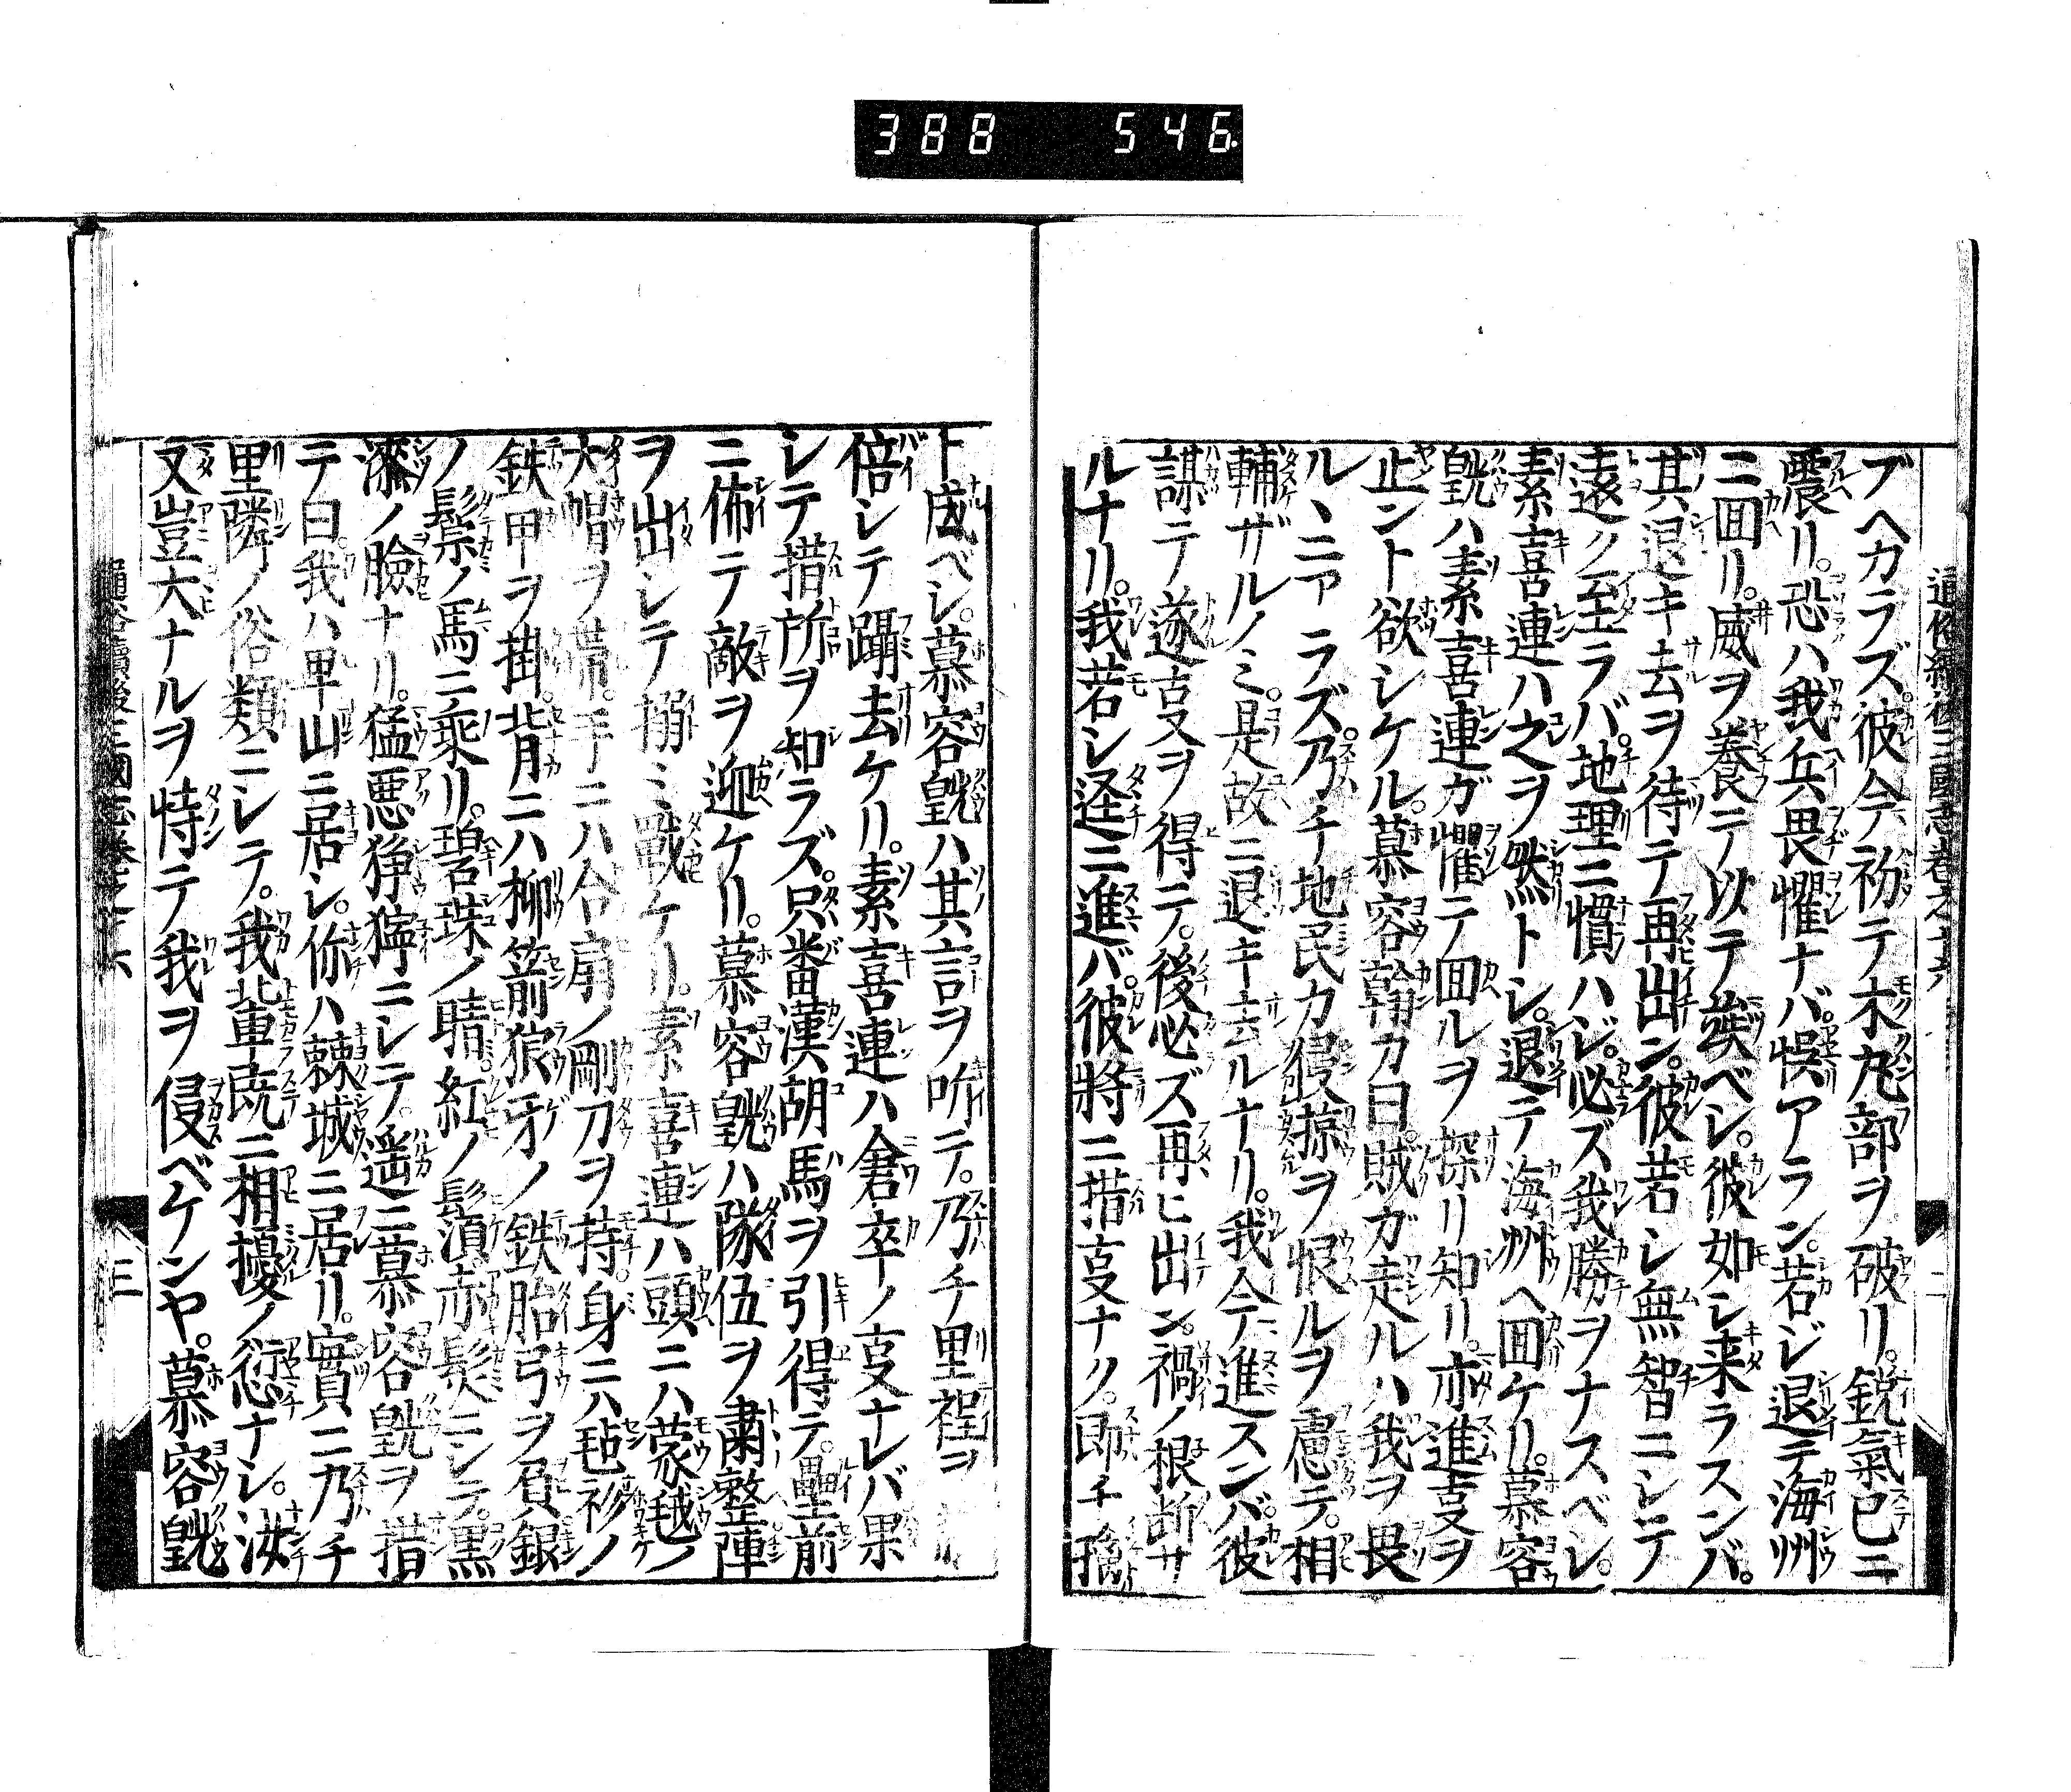 388 546
通俗續後三國志巻之十六
ブヘカラズ。彼今初テ木丸部ヲ破リ。鋭氣已ニ
震リ。恐ハ我兵畏懼ナバ。悞アラン。若ジ退テ海州
ニ囬リ。威ヲ養テ以テ竢ベシ。彼如シ来ラスンバ。
其退キ去ヲ待テ再出ン。彼若シ無智ニシテ
遠ク至ラバ。地理ニ慣ハジ。必ズ我勝ヲナスベシ。
素喜連ハ之ヲ然トシ。退テ海州ヘ囬ケリ。慕容
皝ハ素喜連ガ懼テ囬ルヲ探リ知リ。亦進叓ヲ
止ント欲シケル。慕容翰カ曰。賊ガ走ルハ我ヲ畏
ルヽニアラズ。乃チ地民カ侵掠ヲ恨ルヲ慮テ。相
輔ザルノミ。是故ニ退キ去ルナリ。我今進スンバ。彼
謀テ遂叓ヲ得ニテ。後必ズ再ヒ出ン。禍ノ根断サ
ルナリ。我若シ逕ニ進バ。彼將ニ措叓ナク。即チ擒
ト成ベシ。慕容皝ハ其言ヲ听テ。乃チ里程ヲ
倍シテ躡去ケリ。素喜連ハ倉卒ノ叓ナレバ果
シテ措所ヲ知ラズ。只畨漢胡馬ヲ引得テ。壘前
ニ佈テ敵ヲ迎ケリ。慕容皝ハ隊伍ヲ肅整陣
ヲ出シテ搦ミ戰ケリ。素喜連ハ頭ニハ蒙毧ノ
大帽ヲ帯。手ニハ合扇ノ剛刀ヲ持。身ニハ毡衫ノ
鉄甲ヲ掛。背ニハ柳箭狼牙ノ鉄胎弓ヲ負。銀
ノ鬃ノ馬ニ乘リ。碧珠ノ晴。紅ノ髭湏。赤髮ニシテ。黒
漆ノ臉ナリ。猛悪猙獰ニシテ。遥ニ慕容皝ヲ指
テ曰。我ハ里山ニ居シ。你ハ棘城ニ居リ。實ニ乃チ
里隣ノ俗類ニシテ。我輩既ニ相擾ノ愆ナシ。汝
又豈大ナルヲ恃テ我ヲ侵ベケンヤ。慕容皝
三